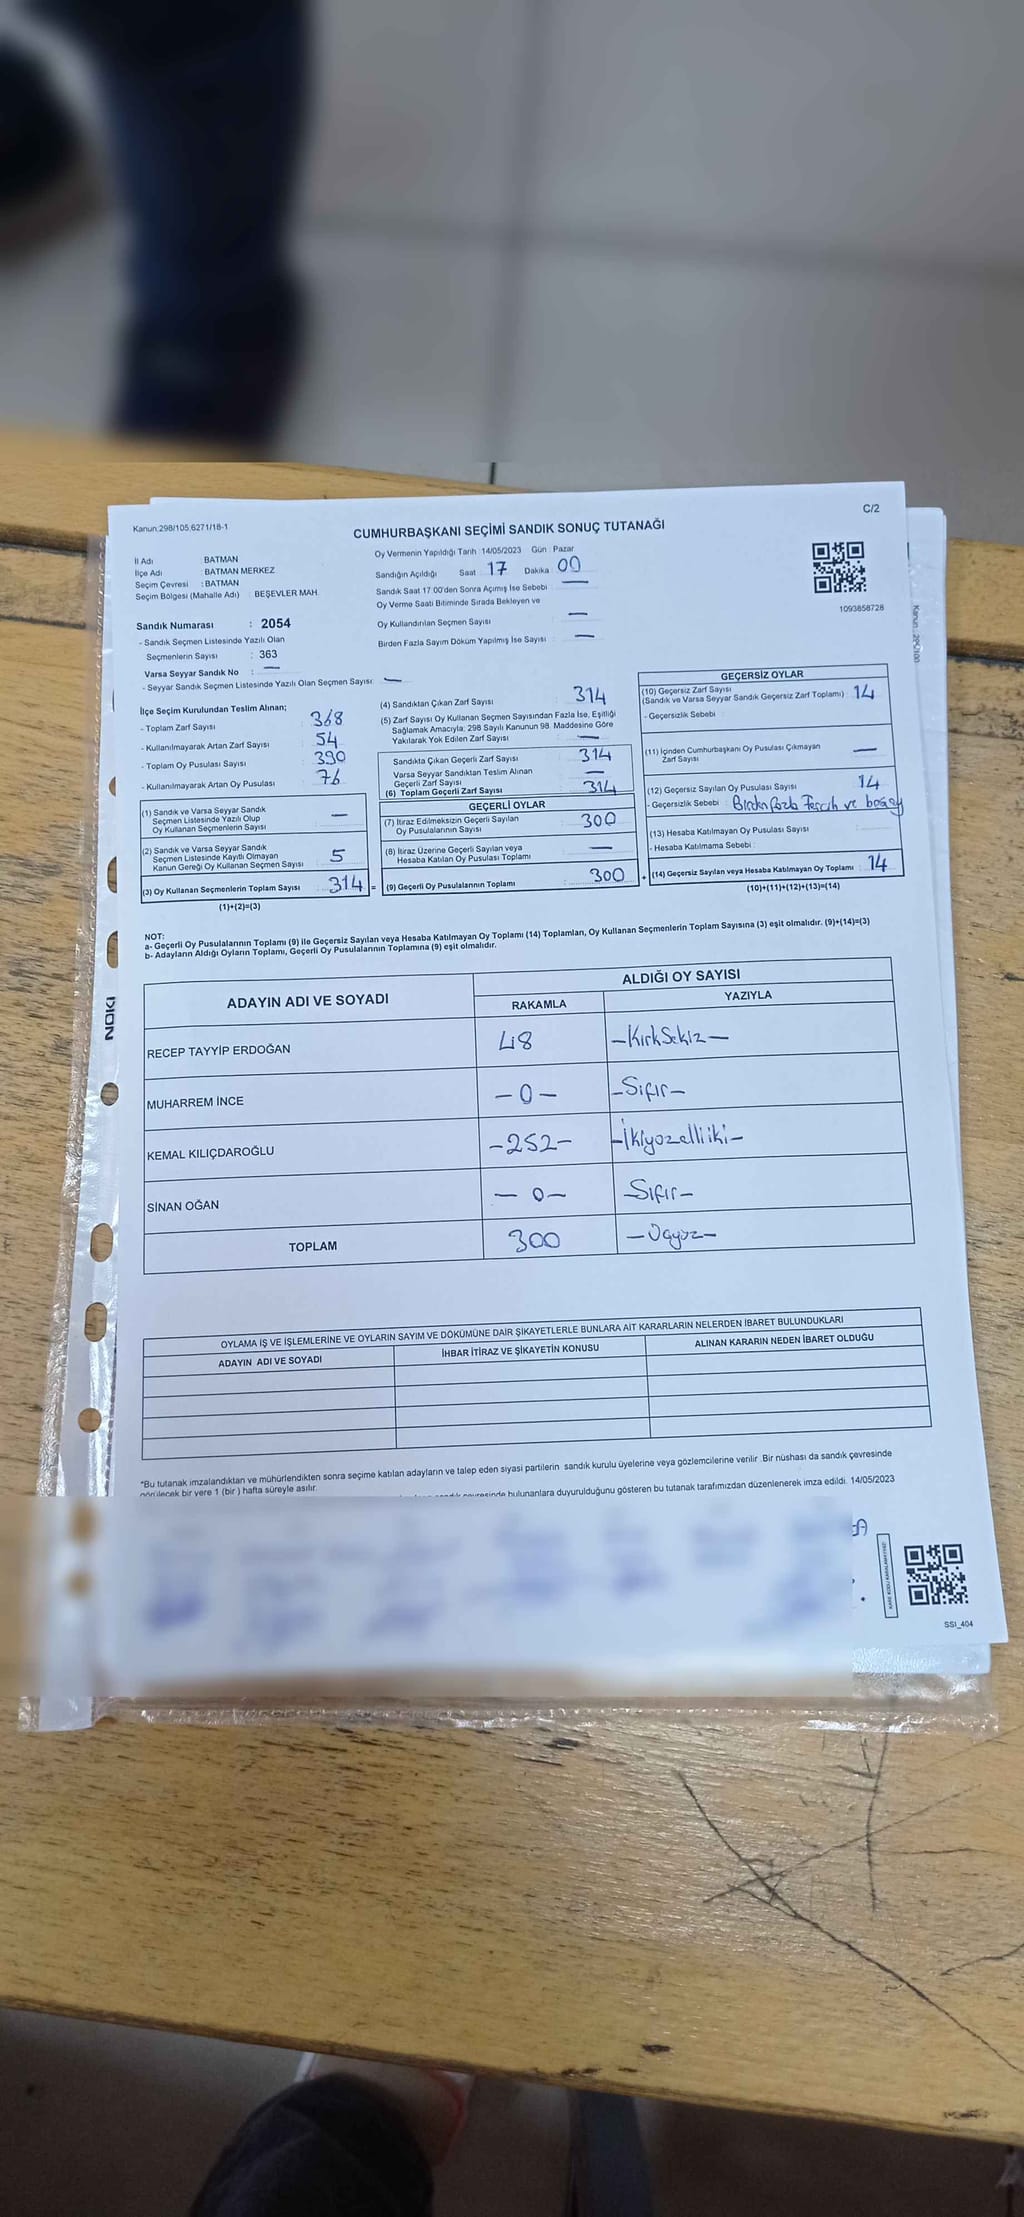 C/2
Kanun:298/105,6271/18-1
CUMHURBAŞKANI SEÇİMİ SANDIK SONUÇ TUTANAĞI
İl Adı BATMAN
İlçe Adı : BATMAN MERKEZ
Seçim Çevresi : BATMAN
Seçim Bölgesi (Mahalle Adı) : BEŞEVLER MAH.
Sandık Numarası : 2054
- Sandık Seçmen Listesinde Yazılı Olan
Seçmenlerin Sayısı : 363
Varsa Seyyar Sandık No : —
- Seyyar Sandık Seçmen Listesinde Yazılı Olan Seçmen Sayısı: —
Oy Vermenin Yapıldığı Tarih : 14/05/2023 Gün : Pazar
Sandığın Açıldığı Saat 17 Dakika 00
Sandık Saat 17:00'den Sonra Açımış İse Sebebi : —
Oy Verme Saati Bitiminde Sırada Bekleyen ve
Oy Kullandırılan Seçmen Sayısı : —
Birden Fazla Sayım Döküm Yapılmış İse Sayısı : —
1093858728
Kanun: 295/100
İlçe Seçim Kurulundan Teslim Alınan;
- Toplam Zarf Sayısı : 368
- Kullanılmayarak Artan Zarf Sayısı : 54
- Toplam Oy Pusulası Sayısı : 390
- Kullanılmayarak Artan Oy Pusulası : 76
(1) Sandık ve Varsa Seyyar Sandık
Seçmen Listesinde Yazılı Olup
Oy Kullanan Seçmenlerin Sayısı : —
(2) Sandık ve Varsa Seyyar Sandık
Seçmen Listesinde Kayıtlı Olmayan
Kanun Gereği Oy Kullanan Seçmen Sayısı : 5
(3) Oy Kullanan Seçmenlerin Toplam Sayısı : 314 =
(1)+(2)=(3)
(4) Sandıktan Çıkan Zarf Sayısı : 314
(5) Zarf Sayısı Oy Kullanan Seçmen Sayısından Fazla İse, Eşitliği
Sağlamak Amacıyla; 298 Sayılı Kanunun 98. Maddesine Göre
Yakılarak Yok Edilen Zarf Sayısı : —
Sandıkta Çıkan Geçerli Zarf Sayısı : 314
Varsa Seyyar Sandıktan Teslim Alınan
Geçerli Zarf Sayısı : —
(6) Toplam Geçerli Zarf Sayısı : 314
GEÇERLİ OYLAR
(7) İtiraz Edilmeksizin Geçerli Sayılan
Oy Pusulalarının Sayısı : 300
(8) İtiraz Üzerine Geçerli Sayılan veya
Hesaba Katılan Oy Pusulası Toplamı : —
(9) Geçerli Oy Pusulalarının Toplamı : 300 +
GEÇERSİZ OYLAR
(10) Geçersiz Zarf Sayısı
(Sandık ve Varsa Seyyar Sandık Geçersiz Zarf Toplamı) : 14
- Geçersizlik Sebebi :
(11) İçinden Cumhurbaşkanı Oy Pusulası Çıkmayan
Zarf Sayısı : —
(12) Geçersiz Sayılan Oy Pusulası Sayısı : 14
- Geçersizlik Sebebi : Birden fazla Tercih ve boş oy
(13) Hesaba Katılmayan Oy Pusulası Sayısı :
- Hesaba Katılmama Sebebi :
(14) Geçersiz Sayılan veya Hesaba Katılmayan Oy Toplamı : 14
(10)+(11)+(12)+(13)=(14)
NOT:
a- Geçerli Oy Pusulalarının Toplamı (9) ile Geçersiz Sayılan veya Hesaba Katılmayan Oy Toplamı (14) Toplamları, Oy Kullanan Seçmenlerin Toplam Sayısına (3) eşit olmalıdır. (9)+(14)=(3)
b- Adayların Aldığı Oyların Toplamı, Geçerli Oy Pusulalarının Toplamına (9) eşit olmalıdır.
NOKI
ADAYIN ADI VE SOYADI
ALDIĞI OY SAYISI
RAKAMLA YAZIYLA
RECEP TAYYİP ERDOĞAN 48 —Kırk Sekiz—
MUHARREM İNCE —0— —Sıfır—
KEMAL KILIÇDAROĞLU —252— —İkiyüzelliiki—
SİNAN OĞAN —0— —Sıfır—
TOPLAM 300 —Üçyüz—
OYLAMA İŞ VE İŞLEMLERİNE VE OYLARIN SAYIM VE DÖKÜMÜNE DAİR ŞİKAYETLERLE BUNLARA AİT KARARLARIN NELERDEN İBARET BULUNDUKLARI
ADAYIN ADI VE SOYADI İHBAR İTİRAZ VE ŞİKAYETİN KONUSU ALINAN KARARIN NEDEN İBARET OLDUĞU
*Bu tutanak imzalandıktan ve mühürlendikten sonra seçime katılan adayların ve talep eden siyasi partilerin sandık kurulu üyelerine veya gözlemcilerine verilir. Bir nüshası da sandık çevresinde
görülecek bir yere 1 (bir ) hafta süreyle asılır.
bulunanlara duyurulduğunu gösteren bu tutanak tarafımızdan düzenlenerek imza edildi. 14/05/2023
SSI_404